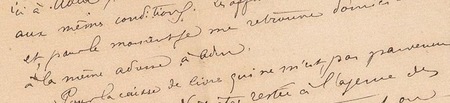 ici à
aux mêmes conditions. Les
et pour le moment je me retrouve
à la même adresse à Aden.
Pour la caisse de livres qui ne m'est pas parvenue
restée à l'agence des